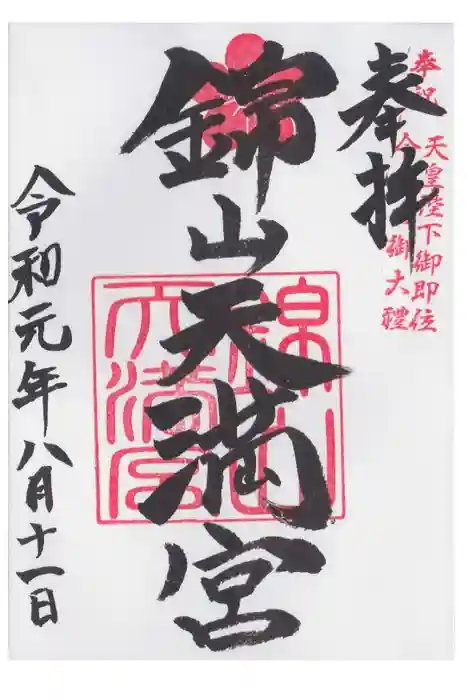 奉祝
天皇陛下御即位
令和御大禮
奉拝
錦山天満宮
錦山天満宮
令和元年八月十一日